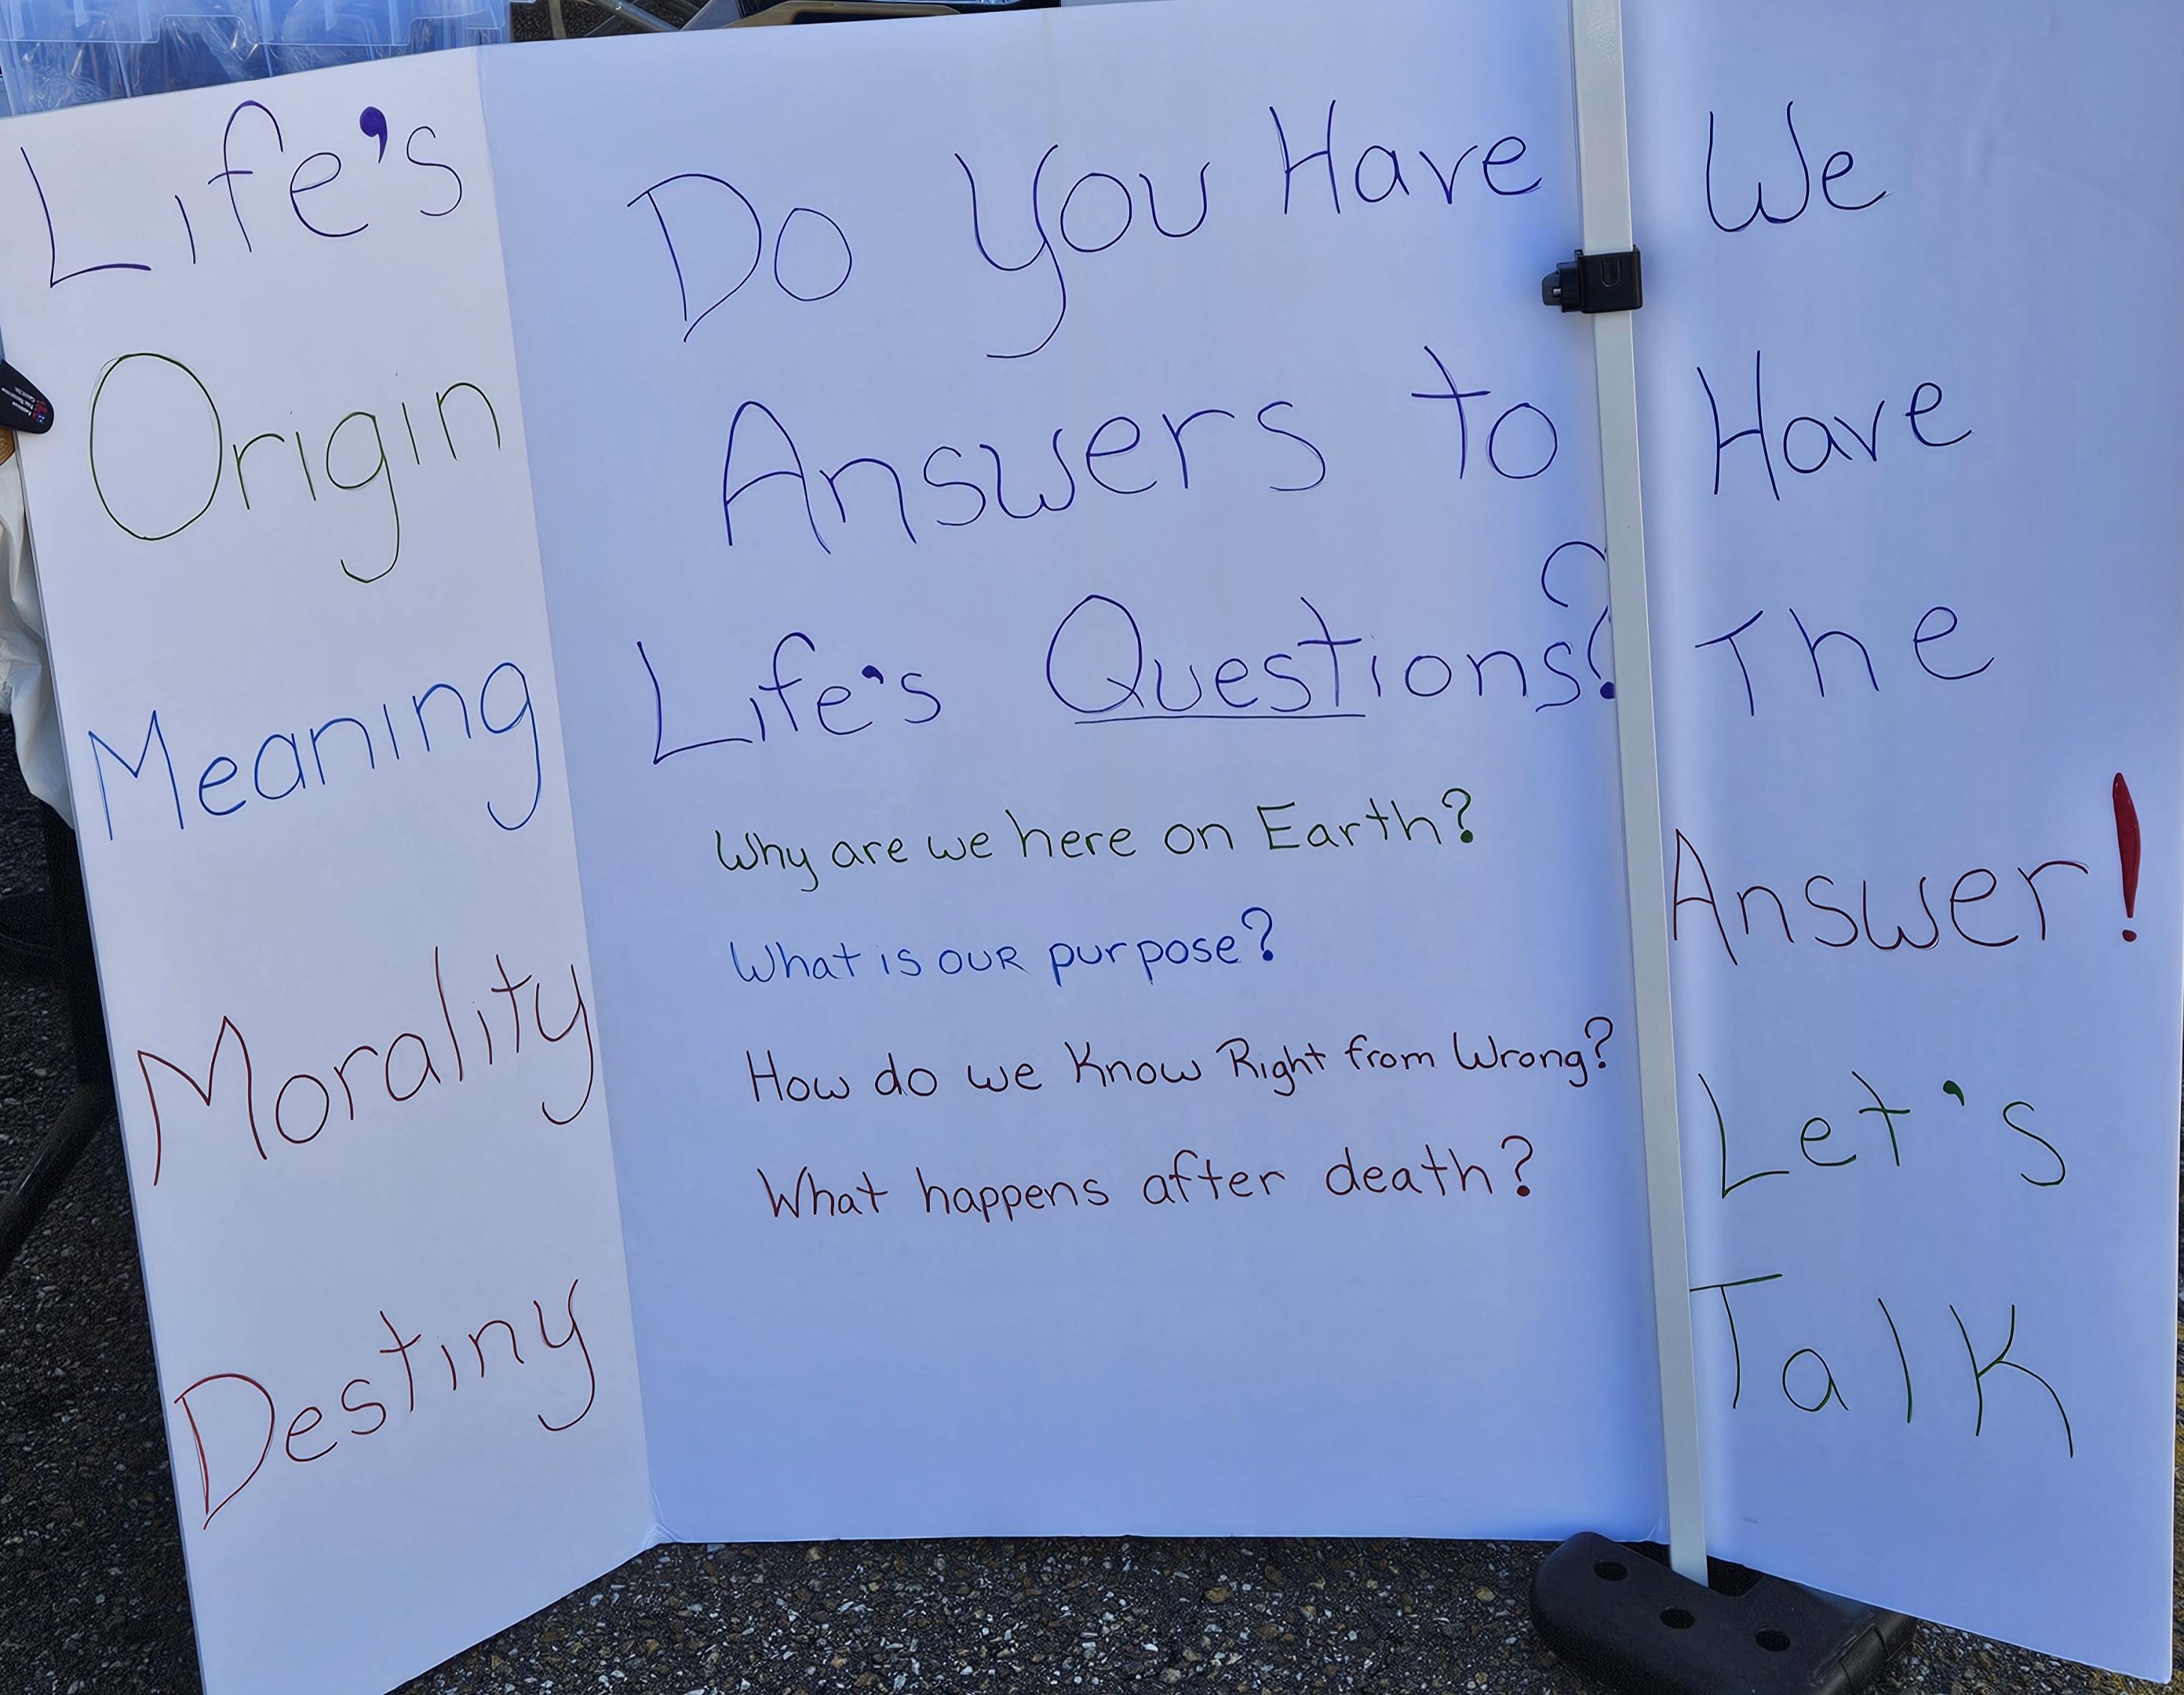 Life's
Origin
Meaning
Morality
Destiny
Do You Have
Answers to
Life's Questions?
Why are we here on Earth?
What is OUR purpose?
How do we Know Right from Wrong?
What happens after death?
We
Have
The
Answer!
Let's
Talk